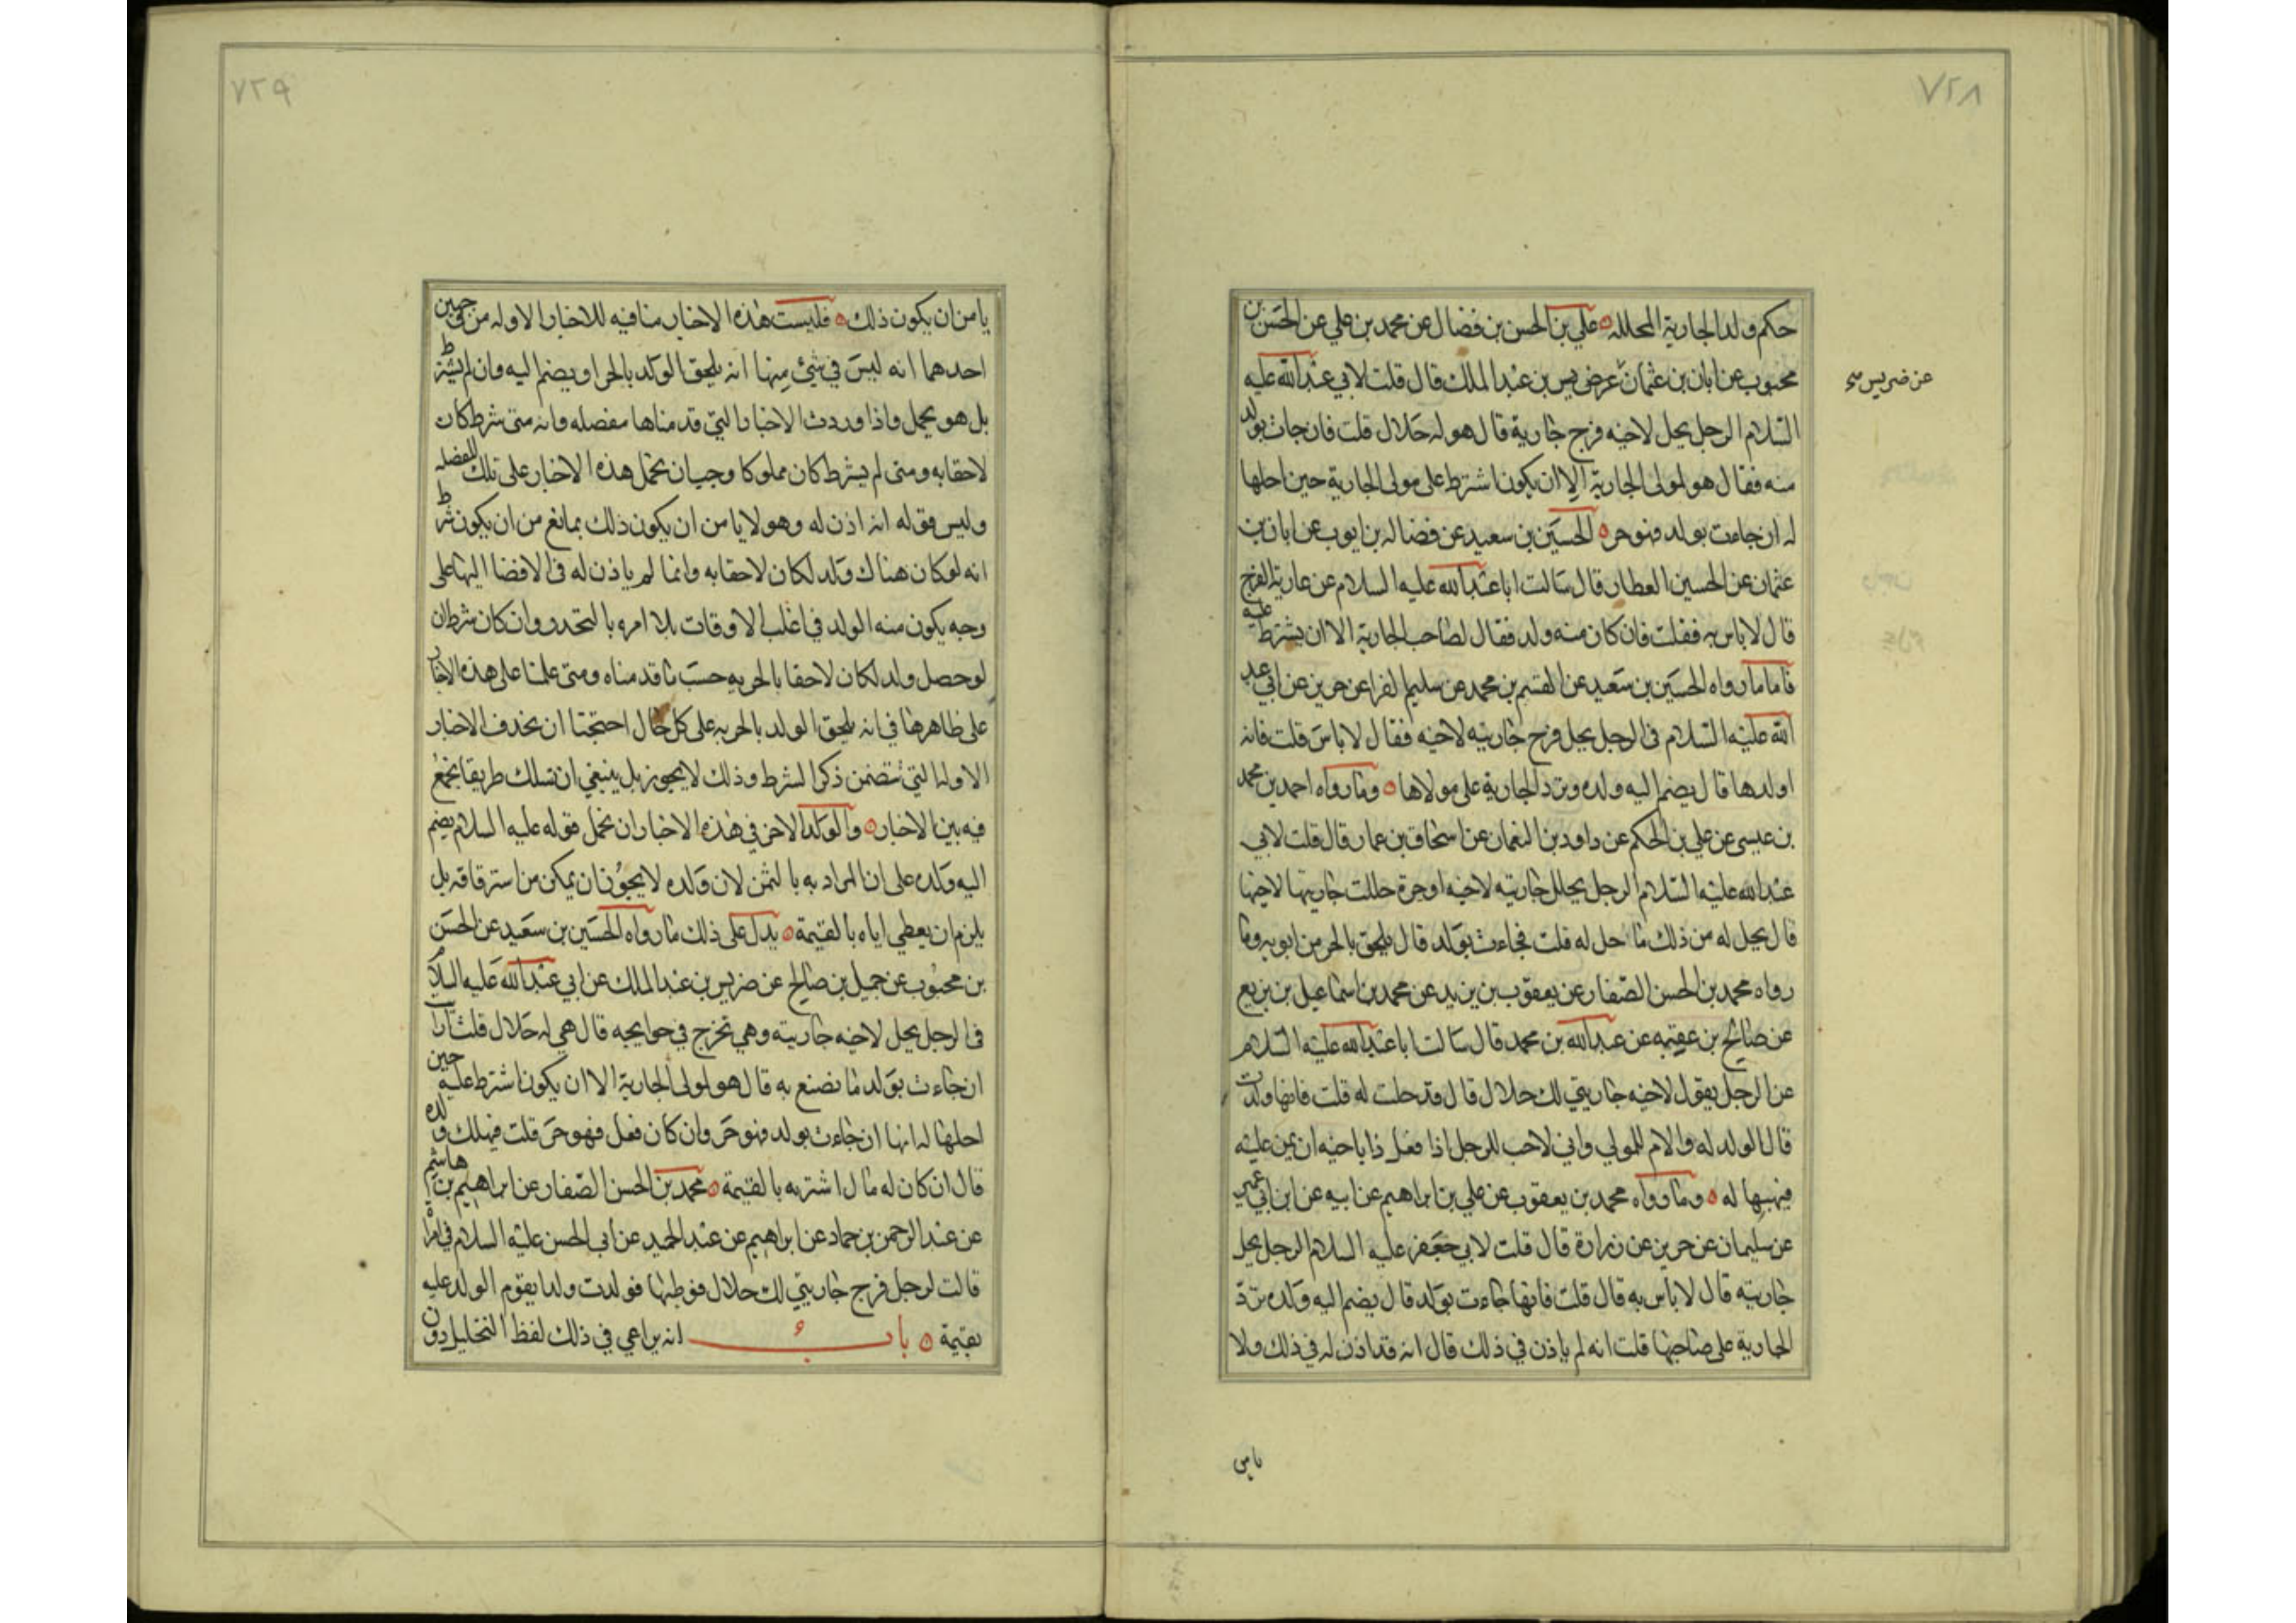 ٧٢٨
حكم ولد الجارية المحلله ه علي بن الحسن بن فضال عن محمد بن علي عن الحسن بن
محبوب عن ابان بن عثمان عن ضريس بن عبد الملك قال قلت لابي عبد الله عليه
عن ضريس صح
السلام الرجل يحل لاخيه فرج جارية قال هو له حلال قلت فان جات بولد
منه فقال هو لمولى الجارية الا ان يكون اشترط على مولى الجارية حين احلها
له ان جاءت بولد فهو حر ه الحسين بن سعيد عن فضاله بن ايوب عن ابان بن
عثمان عن الحسين العطار قال سالت ابا عبد الله عليه السلام عن عارية الفرج
قال لا باس به فقلت فان كان منه ولد فقال لصاحب الجارية الا ان يشترط عليه
فاما ما رواه الحسين بن سعيد عن القسم بن محمد عن سليم الفرا عن حريز عن ابي عبد
الله عليه السلام في الرجل يحل فرج جاريته لاخيه فقال لا باس قلت فانه
اولدها قال يضم اليه ولده وترد الجارية على مولاها ه وما رواه احمد بن محمد
بن عيسى عن علي بن الحكم عن داود بن النعمان عن اسحاق بن عمار قال قلت لابي
عبد الله عليه السلام الرجل يحلل جاريته لاخيه او حرة حللت جاريتها لاخيها
قال يحل له من ذلك ما حل له قلت فجاءت بولد قال يلحق بالحر من ابويه وما
رواه محمد بن الحسن الصفار عن يعقوب بن يزيد عن محمد بن اسماعيل بن بزيع
عن صالح بن عقبه عن عبد الله بن محمد قال سالت ابا عبد الله عليه السلام
عن الرجل يقول لاخيه جاريتي لك حلال قال قد حلت له قلت فانها ولدت
قال الولد له والام للمولي واني لاحب للرجل اذا فعل ذا باخيه ان يمن عليه
فيهبها له ه وما رواه محمد بن يعقوب عن علي بن ابراهيم عن ابيه عن ابن ابي عمير
عن سليمان عن حريز عن زرارة قال قلت لابي جعفر عليه السلام الرجل يحل
جاريته قال لا بأس به قال قلت فانها جاءت بولد قال يضم اليه ولده وترد
الجارية على صاحبها قلت انه لم ياذن في ذلك قال انه قد اذن له في ذلك ولا
يامن
٧٢٩
يامن ان يكون ذلك ه فليست هذه الاخبار منافيه للاخبار الاوله من جهتين
احدهما انه ليس في شئ منها انه يلحق الولد بالحر او يضم اليه وان لم يشترط
بل هو مجمل واذا وردت الاخبار التي قدمناها مفصله وانه متى شرط كان
لاحقا به ومتى لم يشرط كان مملوكا وجب ان تحمل هذه الاخبار على تلك المفصله
وليس قوله انه اذن له وهو لا يامن ان يكون ذلك بمانع من ان يكون شرط
انه لو كان هناك ولد لكان لاحقا به وانما لم ياذن له في الافضا اليها على
وجه يكون منه الولد في اغلب الاوقات بل امره بالتحرر وان كان شرط ان
لو حصل ولد لكان لاحقا بالحريه حسب ما قدمناه ومتى عملنا على هذه الاخبار
على ظاهرها في انه يلحق الولد بالحريه على كل حال احتجنا ان نحذف الاخبار
الاوله التي تتضمن ذكر الشرط وذلك لا يجوز بل ينبغي ان نسلك طريقا نجمع
فيه بين الاخبار ه والولد الاخر في هذه الاخبار ان نحمل قوله عليه السلام يضم
اليه ولده على ان المراد به بالثمن لان ولده لا يجوز ان يمكن من استرقاقه بل
يلزم ان يعطي اياه بالقيمة ه يدل على ذلك ما رواه الحسين بن سعيد عن الحسن
بن محبوب عن جميل بن صالح عن ضريس بن عبد الملك عن ابي عبد الله عليه السلام
في الرجل يحل لاخيه جاريته وهي تخرج في حوايجه قال هي له حلال قلت ارايت
ان جاءت بولد ما يصنع به قال هو لمولى الجارية الا ان يكون اشترط عليه حين
احلها له انها ان جاءت بولد فهو حر وان كان فعل فهو حر قلت فيملك ولده
قال ان كان له مال اشتريه بالقيمة ه محمد بن الحسن الصفار عن ابراهيم بن هاشم
عن عبد الرحمن بن حماد عن ابراهيم عن عبد الحميد عن ابي الحسن عليه السلام في امراة
قالت لرجل فرج جاريتي لك حلال فوطئها فولدت ولدا يقوم الولد عليه
بقيمة ه باب انه يراعي في ذلك لفظ التحليل دون